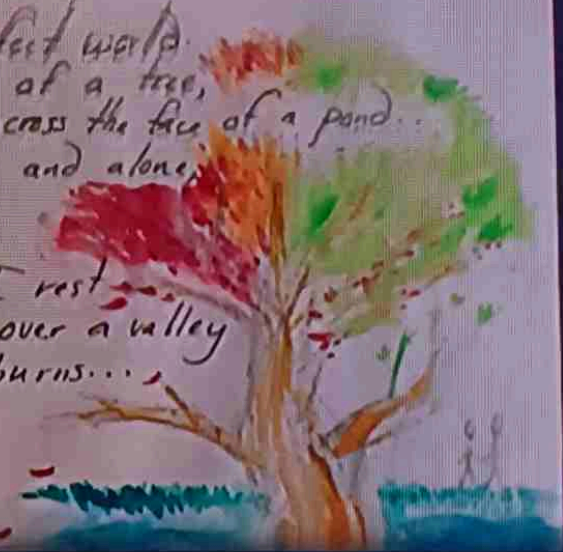 fect world.
of a tree,
cross the face of a pond...
and alone,
I rest
over a valley
burns...